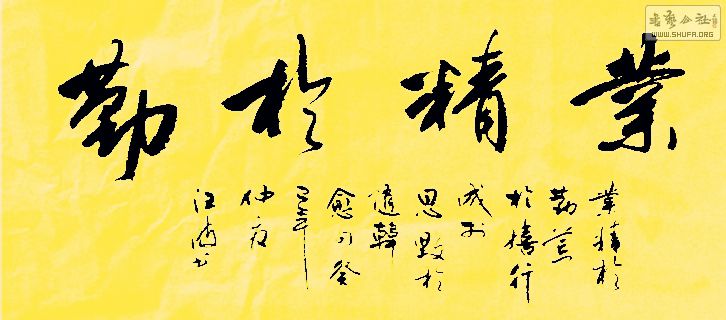 業精於勤
業精於
勤荒
於嬉行
成於
思毀於
隨韓
愈句癸
巳年
仲夏
書藝公社
WWW.SHUFA.ORG